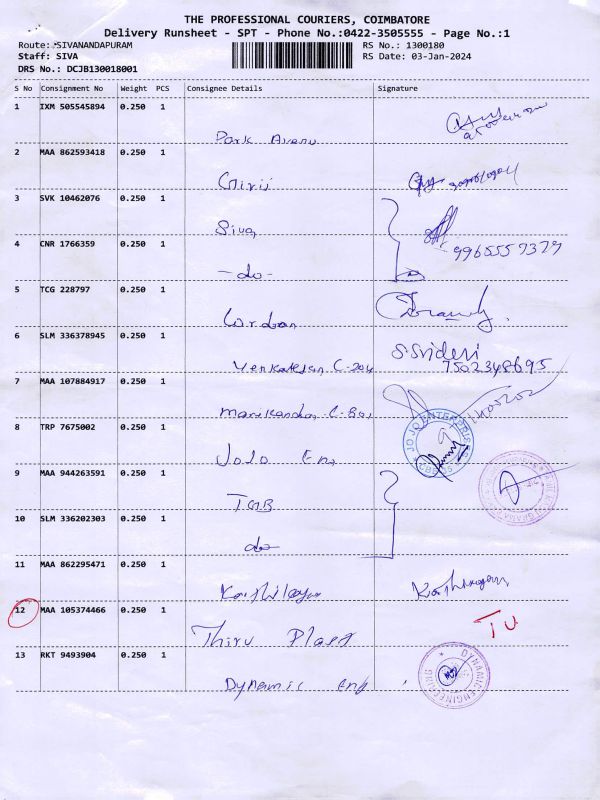 THE PROFESSIONAL COURIERS, COIMBATORE
Delivery Runsheet - SPT - Phone No.:0422-3505555 - Page No.:1
Route: *SIVANANDAPURAM
RS No.: 1300180
Staff: SIVA
RS Date: 03-Jan-2024
DRS No.: DCJB130018001
S No Consignment No Weight PCS Consignee Details Signature
1 IXM 505545894 0.250 1
Park Avenu
2 MAA 862593418 0.250 1
Girij
3 SVK 10462076 0.250 1
Siva
4 CNR 1766359 0.250 1
9965557379
-do-
5 TCG 228797 0.250 1
Cordon
6 SLM 336378945 0.250 1
S.Srideri
Venkatesan C-204
7502348695
7 MAA 107884917 0.250 1
Manikandan C-801
8 TRP 7675002 0.250 1
JO JO ENTERPRISES
CBE-35
JoJo Ent
9 MAA 944263591 0.250 1
TMB
10 SLM 336202303 0.250 1
do
11 MAA 862295471 0.250 1
12 MAA 105374466 0.250 1
Thiru Plast
13 RKT 9493904 0.250 1
DYNAMIC ENGINEERING
Dynamic Eng